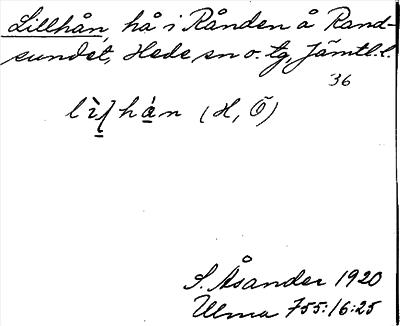 Lillhån, hå i Rånden å Rand-
sundet, Hede sn o. tg, Jämtl. l.
36
(H, Ö)
S. Åsander 1920
Ulma 755:16:25